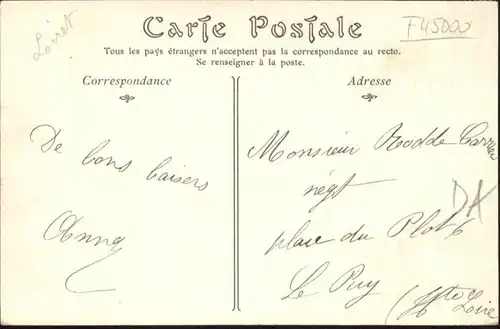 Loiret
F45000
Carte Postale
Tous les pays étrangers n'acceptent pas la correspondance au recto.
Se renseigner à la poste.
Correspondance
De bons baisers
Anna
Adresse
Monsieur Rodde Carrier
négt
place du Plot 6
Le Puy
(Hte Loire
DA